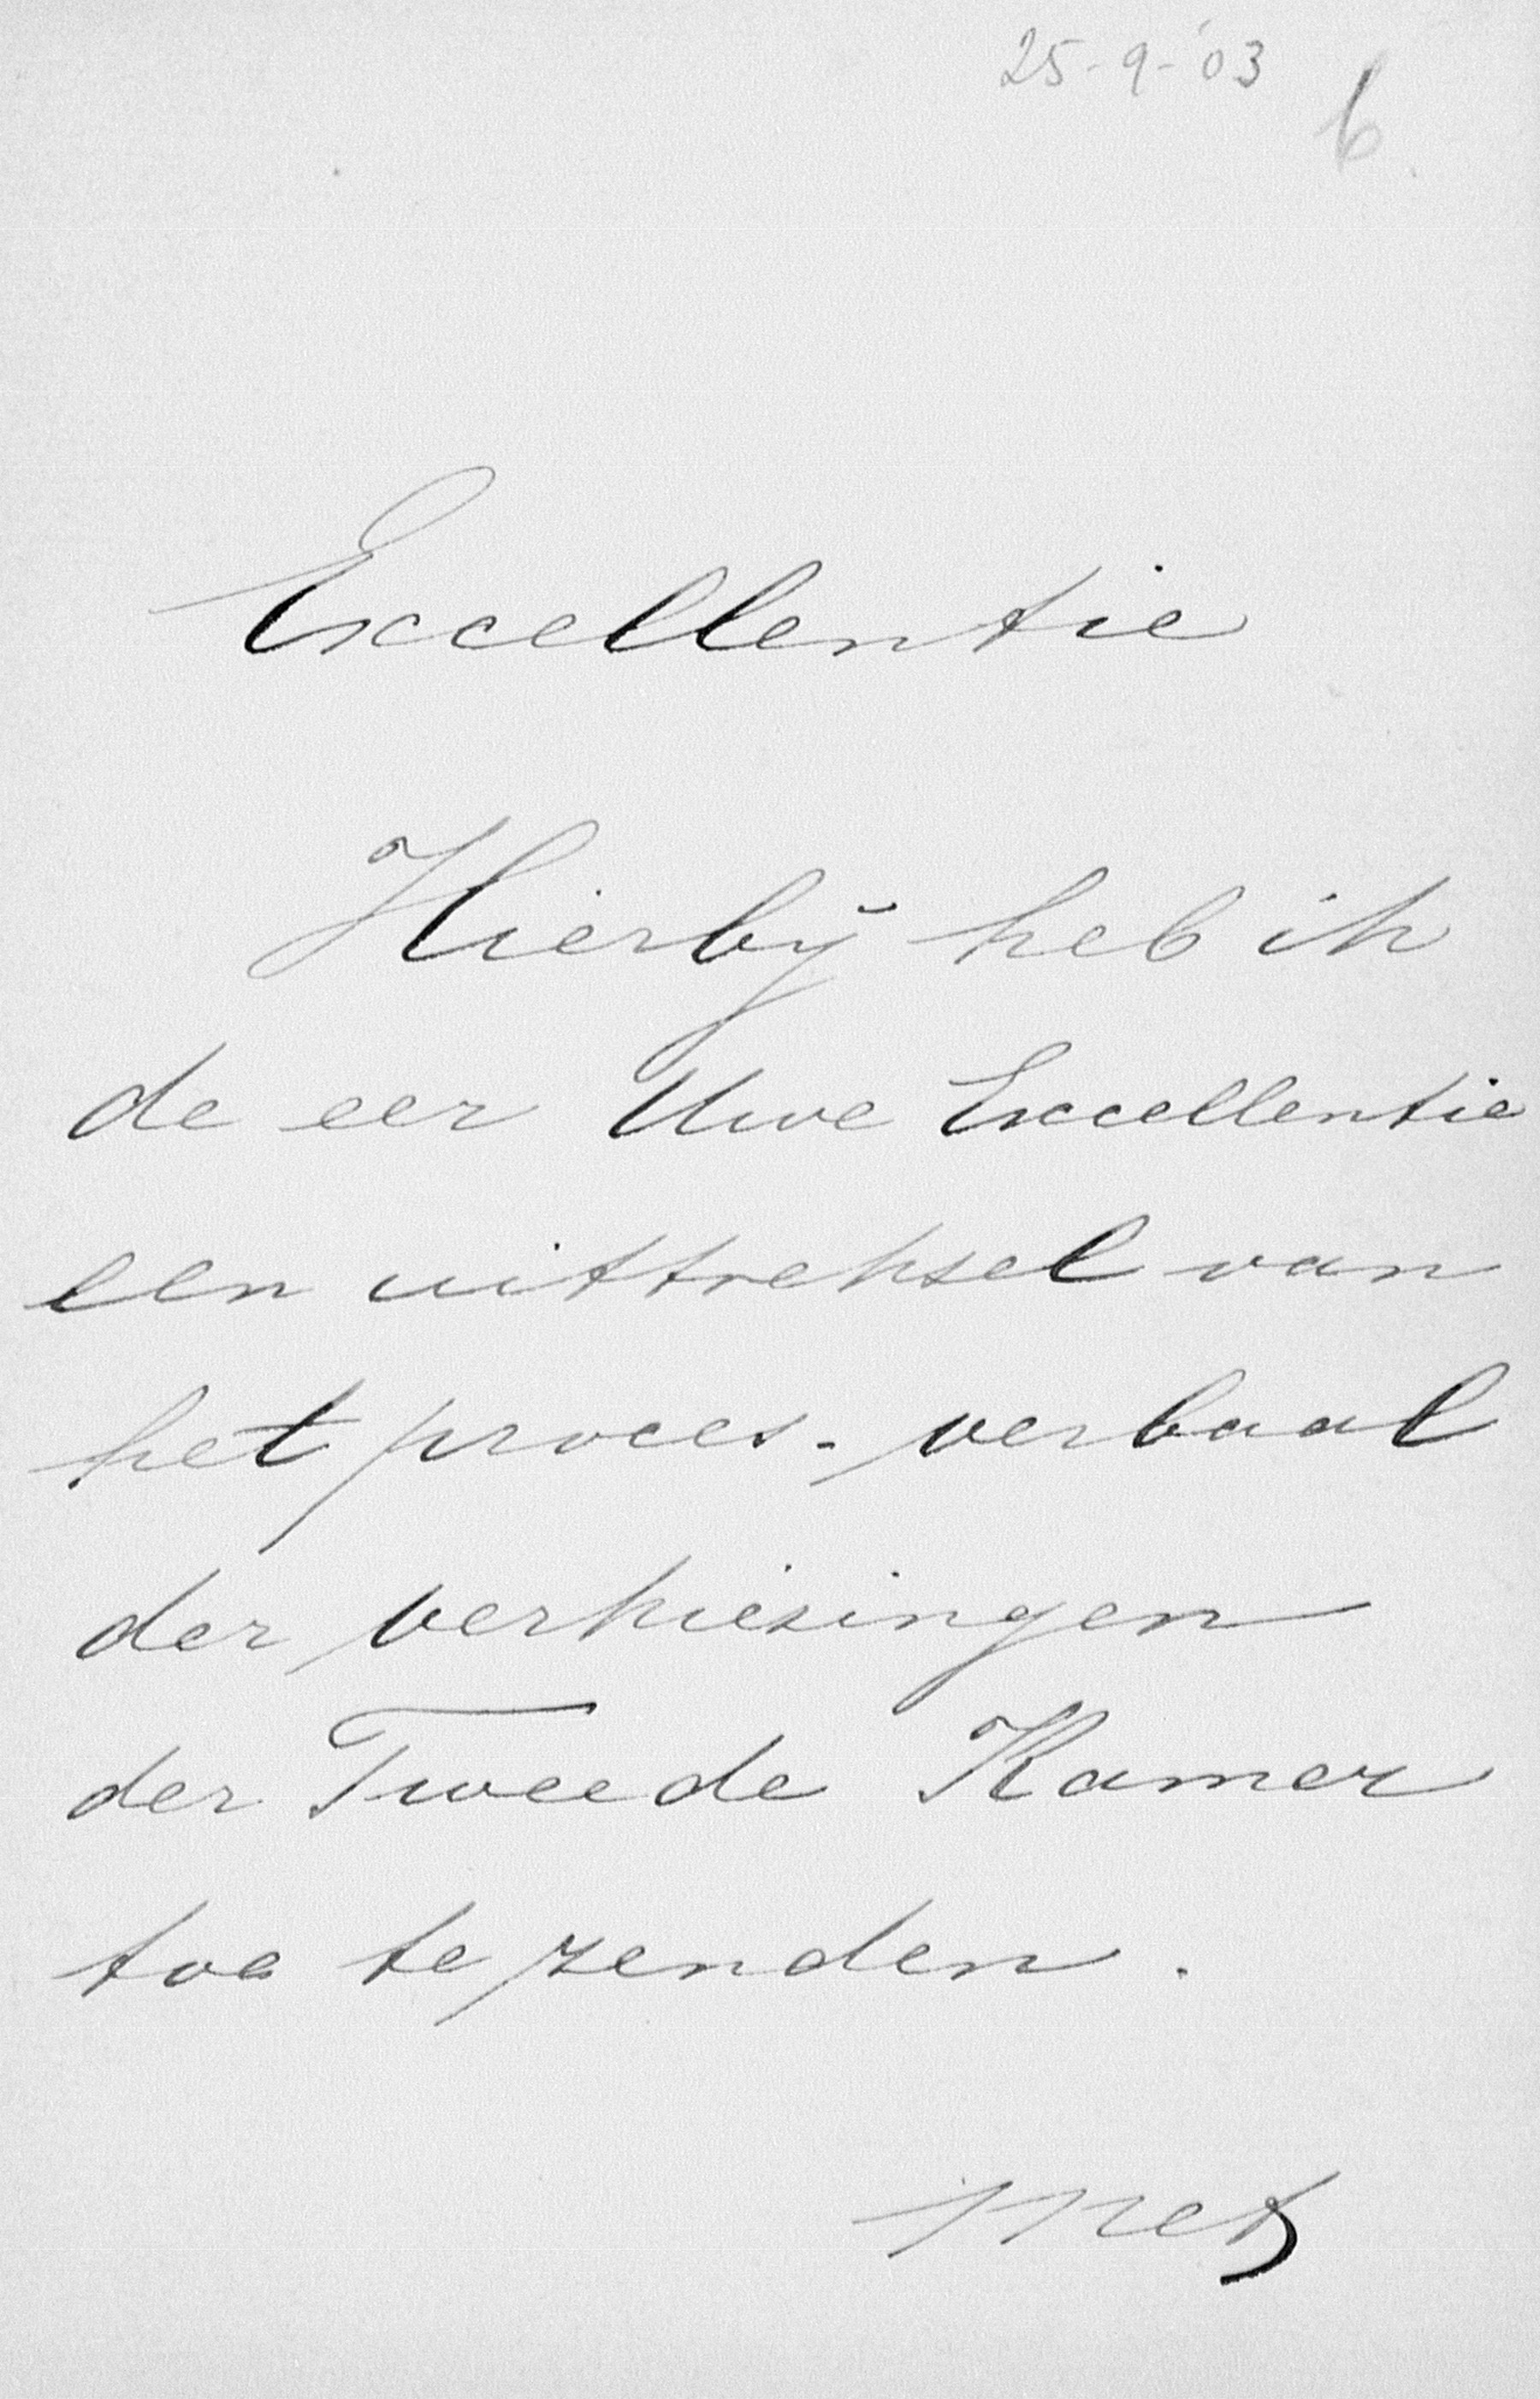 25-9-'03
6
Excellentie
Hierbij heb ik
de eer Uwe Excellentie
een uittreksel van
het proces-verbaal
der verkiezingen
der Tweede Kamer
toe te zenden.
Met